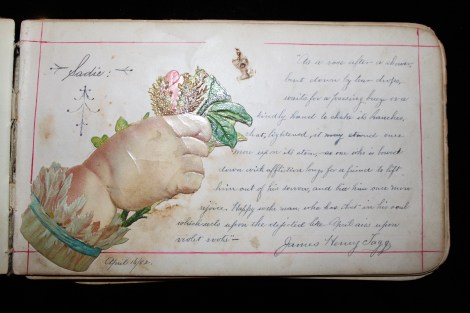 Sadie:
As a rose after a shower,
bent down by tear drops
waits for a passing breeze or a
kindly hand to shake its branches
that, lightened, it may stand once
more upon its stem, so one who is bowed
down with affliction longs for a friend to lift
him out of his sorrow, and bid him once more
rejoice. Happy is the man who has that in his soul
which acts upon the dejected like April airs upon
violet roots—
James Henry
April